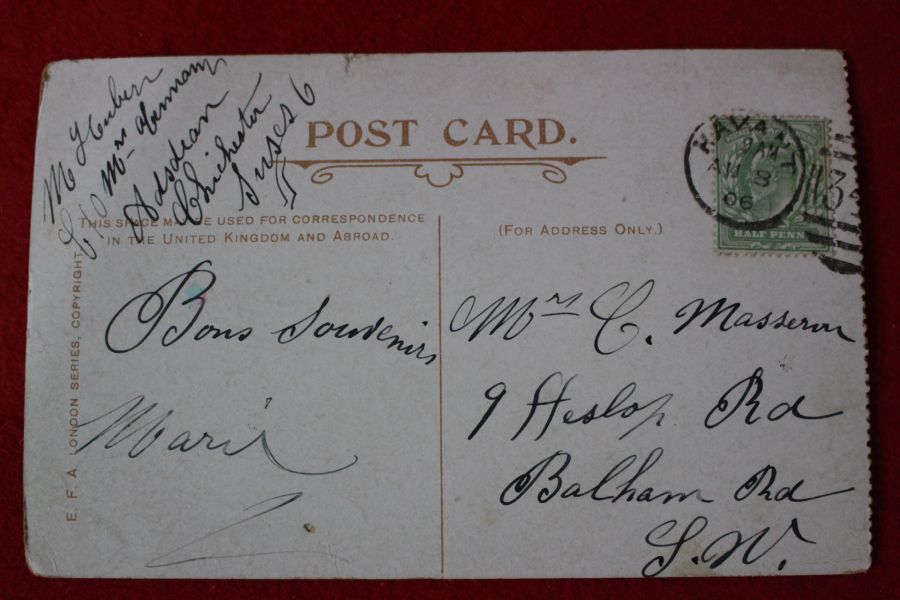 M Huber
C/o Mrs
Adsdean
Chichester
Sussex
POST CARD.
THIS SPACE MAY BE USED FOR CORRESPONDENCE
IN THE UNITED KINGDOM AND ABROAD.
(FOR ADDRESS ONLY.)
E. F. A. LONDON SERIES, COPYRIGHT
Bons Souvenirs
Marie
HAVANT
9 AM
AU 8
06
HALF PENN
Mrs C. Masseron
9 Heslop Rd
Balham Rd
S.W.